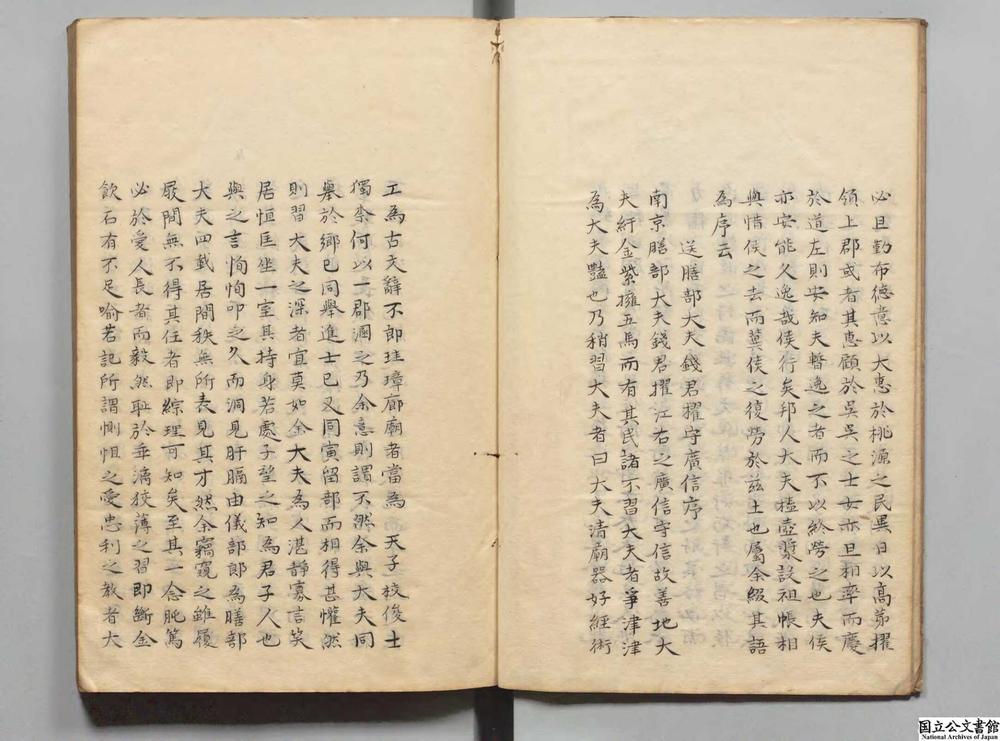 必且勤布德意以大惠於桃源之民異日以高第擢
領上郡或者其惠顧於吳吳之士女亦旦相率而慶
於道左則安知夫暫逸之者而不以終勞之也夫侯
亦安能久逸哉侯行矣邦人大夫榼壺漿設祖帳相
與惜侯之去而冀侯之復勞於茲土也屬余綴其語
為序云
送膳部大夫錢君擢守廣信序
南京膳部大夫錢君擢江右之廣信守信故善地大
夫紆金紫擁五馬而有其民諸不習大夫者爭津津
為大夫豔也乃稍習大夫者曰大夫清廟器好經術
工為古文辭不即珪璋廊廟者當為天子校俊士
獨柰何以一郡溷之乃余意則謂不然余與大夫同
舉於鄉已同舉進士已又同寅留部而相得甚懽然
則習大夫之深者宜莫如余大夫為人湛靜寡言笑
居恒匡坐一室其持身若處子望之知為君子人也
與之言恂恂叩之久而洞見肝膈由儀部郎為膳部
大夫四載居間秩無所表見其才然余竊窺之雖履
屐間無不得其任者即綜理可知矣至其一念肫篤
必於愛人長者而毅然恥於乖漓狡薄之習即斷金
飲石有不足喻若記所謂惻怛之愛忠利之教者大
国立公文書館
National Archives of Japan